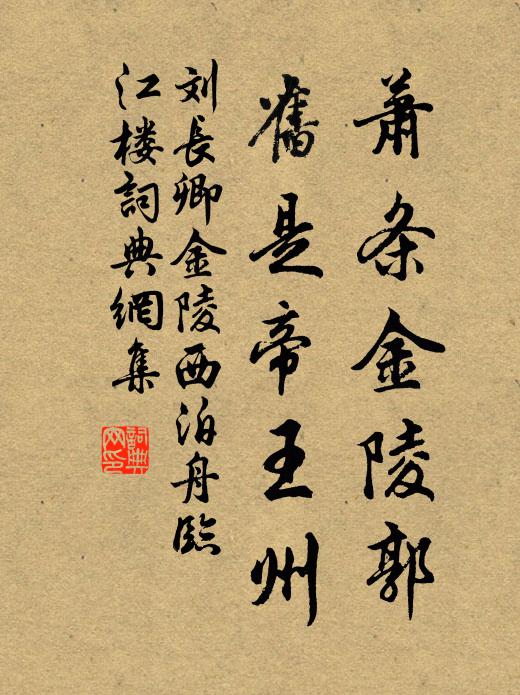 萧条金陵郭
舊是帝王州
刘長卿金陵西泊舟臨
江楼詞典網集
詞典
网印